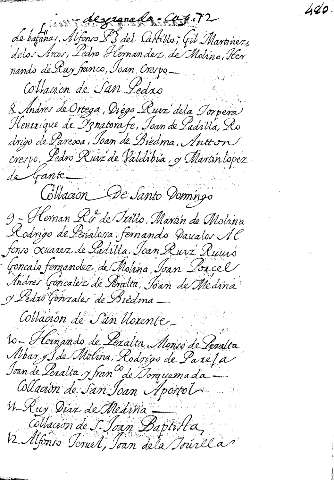 480.
de baqanas, Alfonso Rs del Castillo, Gil Martinez
delos Arcos, Pedro Hernandez de Molina, Her
nando de Ruy franco, Joan Crespo_
Collacion de San Pedro
8 Andres de Ortega, Diego Ruiz dela Torpera
Henrrique de Yznatorafe, Joan de Padilla, Ro
drigo de Parexa, Joan de Biedma, Antton
crespo, Pedro Ruiz de Valdibia, y Martin lopez
de Gante_
Collacion De Santo Domingo
9_ Hernan Rs de Trillo, Martin de Molina
Rodrigo de Peñalosa, fernando Davalos Al
fonso Xuarez de Padilla, Joan Ruiz Ruuio
Goncalo fernandez de Molina, Joan Porcel
Andres Goncalez de Peralta, Joan de Medina
y Pedro Gonzales de Biedma_
Collacion de San llorente_
10_ Hernando de Peralta, Alonso de Peralta
Albar de Molina, Rodrigo de Pareja
Joan de Peralta, y franco de Torquemada_
Collacion de San Joan Apostol
11_ Ruy Diaz de Medina_
Collacion de S. Joan Baptista,
12 Alfonso Teruel, Joan de la Torilla